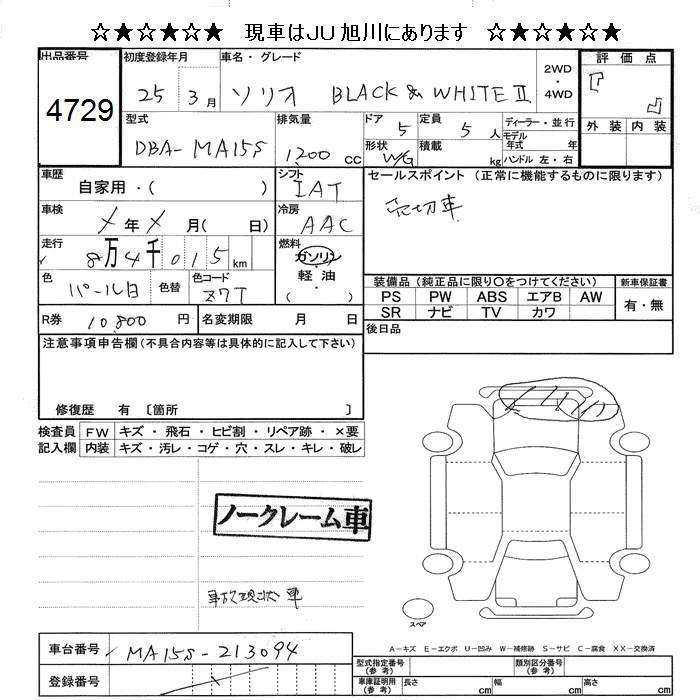 ☆★☆★☆★ 現車はJU旭川にあります ☆★☆★☆★
出品番号 4729
初度登録年月 25 3月
車名・グレード ソリオ BLACK & WHITE Ⅱ
2WD・4WD
評価点 『 』
外装 内装
型式 DBA-MA15S
排気量 1,200 cc
ドア 5
定員 5人
形状 W/G
積載 kg
ディーラー・並行
モデル年式 年
ハンドル 左・右
車歴 自家用・( )
シフト IAT
セールスポイント (正常に機能するものに限ります)
売切車
車検 メ年メ月( 日)
冷房 AAC
走行 8万4千015km
燃料 ガソリン・軽油・( )
色 パール白 色替
色コード Z7T
装備品 (純正品に限り○をつけてください)
新車保証書 有・無
PS PW ABS エアB AW
SR ナビ TV カワ
R券 10,800円
名変期限 月 日
後日品
注意事項申告欄 (不具合内容等は具体的に記入して下さい)
修復歴 有 〔箇所 〕
検査員記入欄
FW キズ・飛石・ヒビ割・リペア跡・×要
内装 キズ・汚レ・コゲ・穴・スレ・キレ・破レ
ノークレーム車
事故現状車
スペア
A-キズ E-エクボ U-凹み W-補修跡 S-サビ C-腐食 XX-交換済
車台番号 MA15S-213094
登録番号
型式指定番号(参考)
類別区分番号(参考)
車庫証明用(参考) 長さ cm 幅 cm 高さ cm